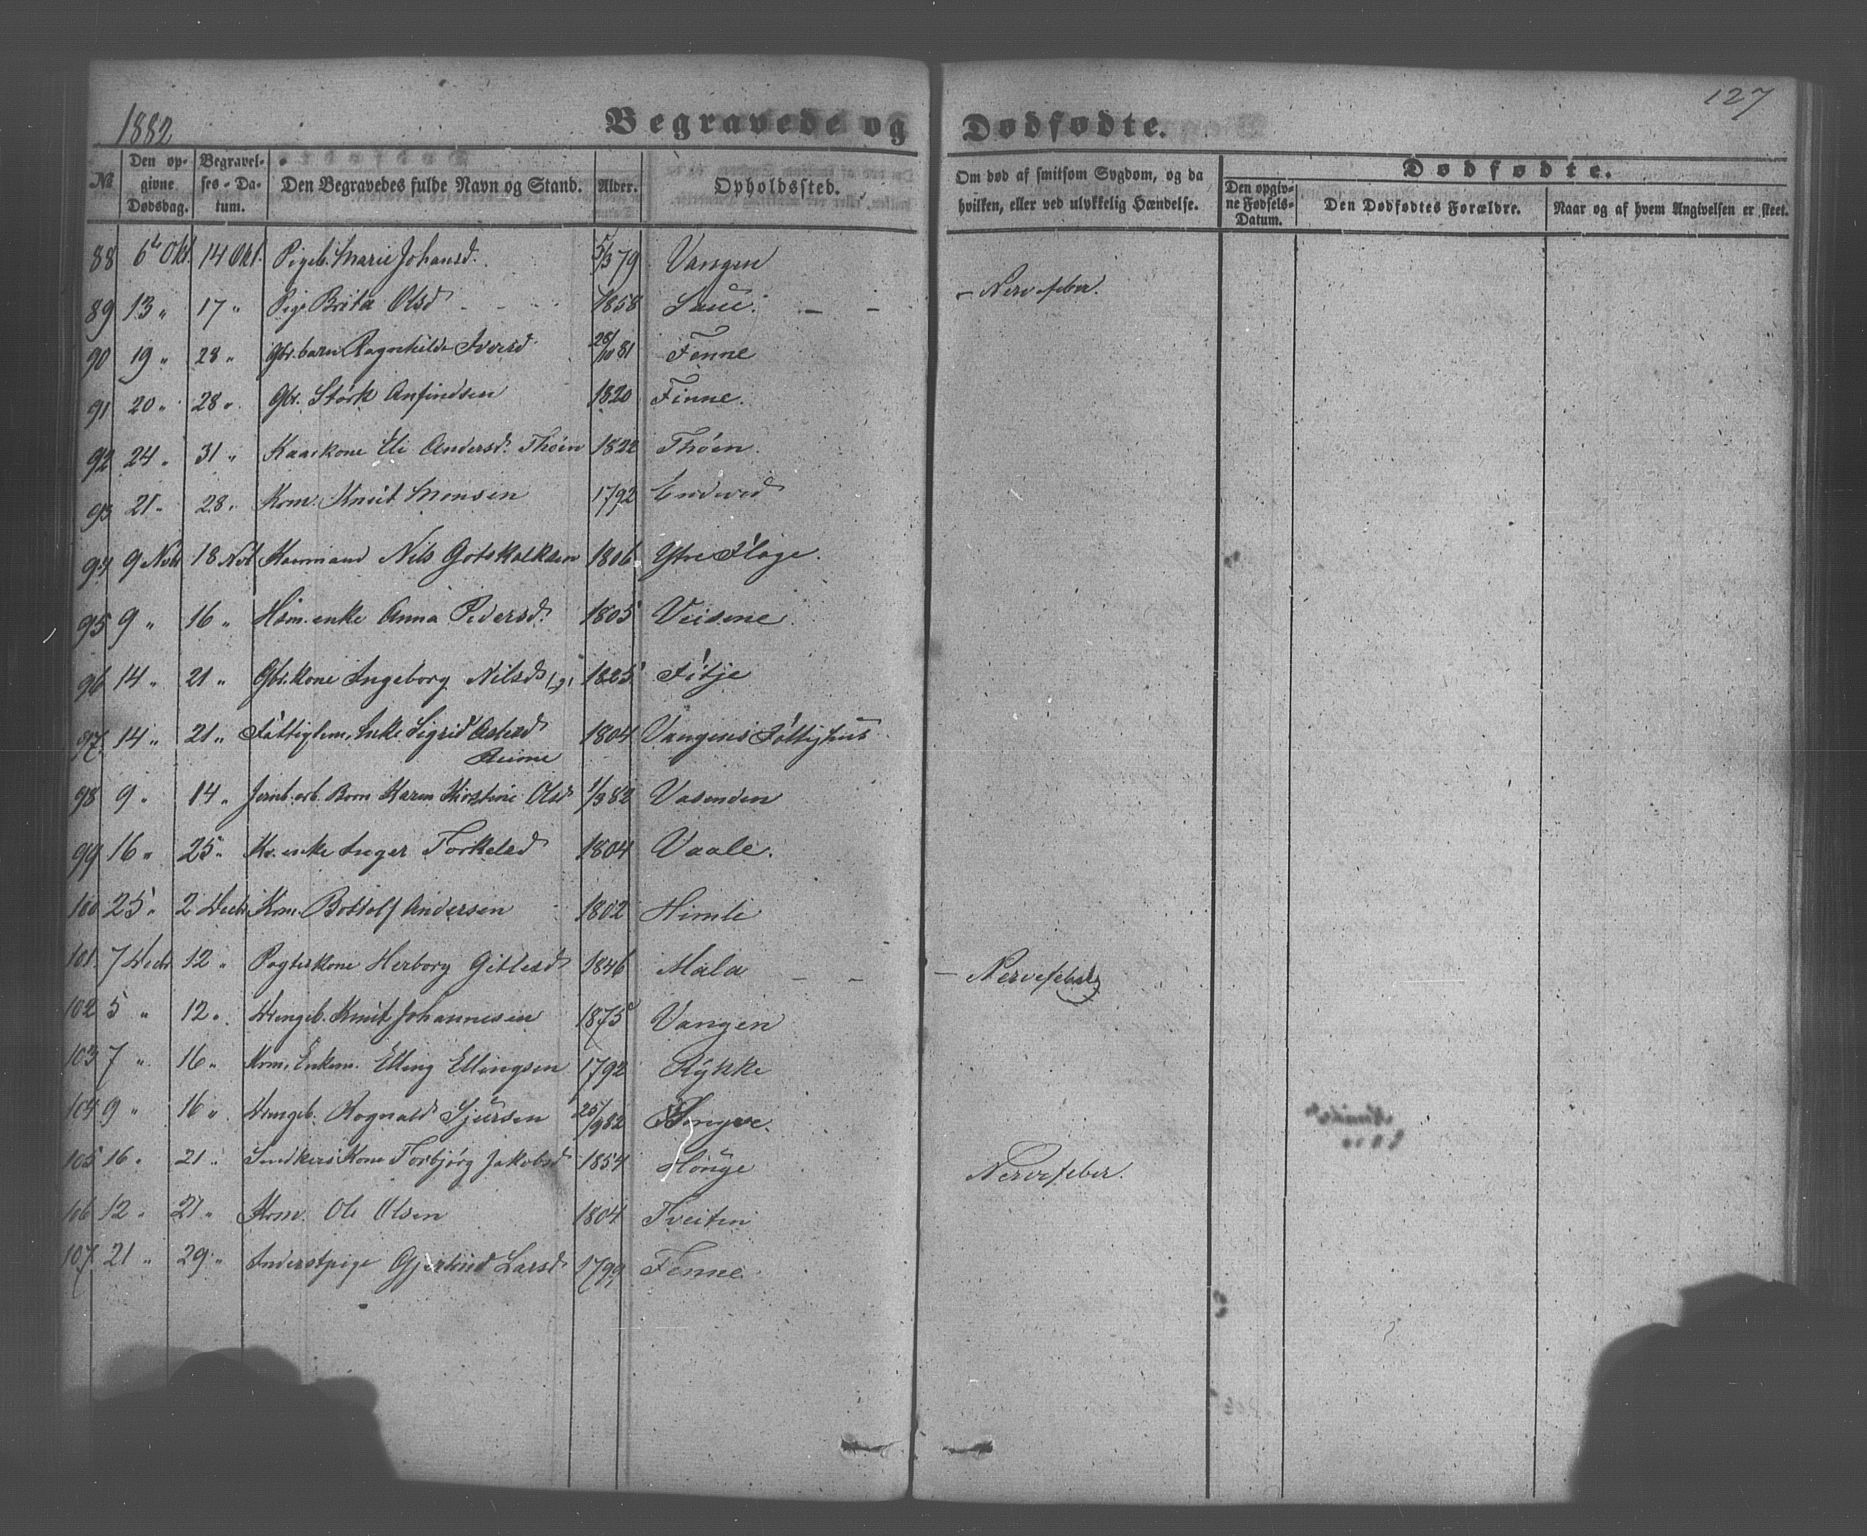 1882
Begravede og Dødfødte.
127
No
Den opgivne Dødsdag.
Begravelses-Datum.
Den Begravedes fulde Navn og Stand.
Alder.
Opholdssted.
Om død af smitsom Sygdom, og da hvilken, eller ved ulykkelig Hændelse.
Dødfødte.
Den opgivne Fødsels-Datum.
Den Dødfødtes Forældre.
Naar og af hvem Angivelsen er skeet.
88 6te Okt. 14 Okt. Pigeb. Marie Johansd. 5/3 79 Vangen
89 13 " 17 " Pige Brita Olsd 1858 Saue. - - - Nervefeber.
90 19 " 28 " Gbr. barn Ragnhilde Iversd 28/10 81 Fenne
91 20 " 28 " Gbr. Størk Anfindsen 1820 Finne.
92 24 " 31 " Kaarkone Eli Andersd. Thöen 1822 Thöen.
93 21 " 28 " Krm. Knut Monsen 1792 Endeved
94 9 Nvbr 18 Nvb Kaarmand Nils Gotskalksen 1806 Ytre Flage.
95 9 " 16 " Hsm. enke Anna Pedersd. 1805 Veisene.
96 14 " 21 " Gbr. kone Ingeborg Nilsd 1825 Fitje
97 14 " 21 " Fattiglem. Enke Sigrid Aslesd Reime 1804 Vangens Fattighus
98 9 " 14 " Jernb. arb. Barn Karen Kirstine Olsd 1/9 82 Vasenden
99 16 " 25 " Kr. enke Inger Torkelsd 1804 Vaale.
100 25 " 2 Decbr Krm. Bottolf Andersen 1802 Himle
101 7 Decbr 12 " Pogterkone Herborg Gitlesd 1846 Mala - - - Nervefeber
102 5 " 12 " Drengeb. Knut Johannesen 1875 Vangen
103 7 " 16 " Krm. Enkem. Elling Ellingsen 1792 Rykke
104 9 " 16 " Drengeb. Ragnald Sjursen 25/9 82
105 16 " 21 " Snedkers Kone Torbjörg Jakobsd 1854 Hauge Nervefeber.
106 12 " 21 " Krm. Ole Olsen 1804 Tveiten
107 21 " 29 " Inderstpige Gjertrud Larsd 1799 Fenne.